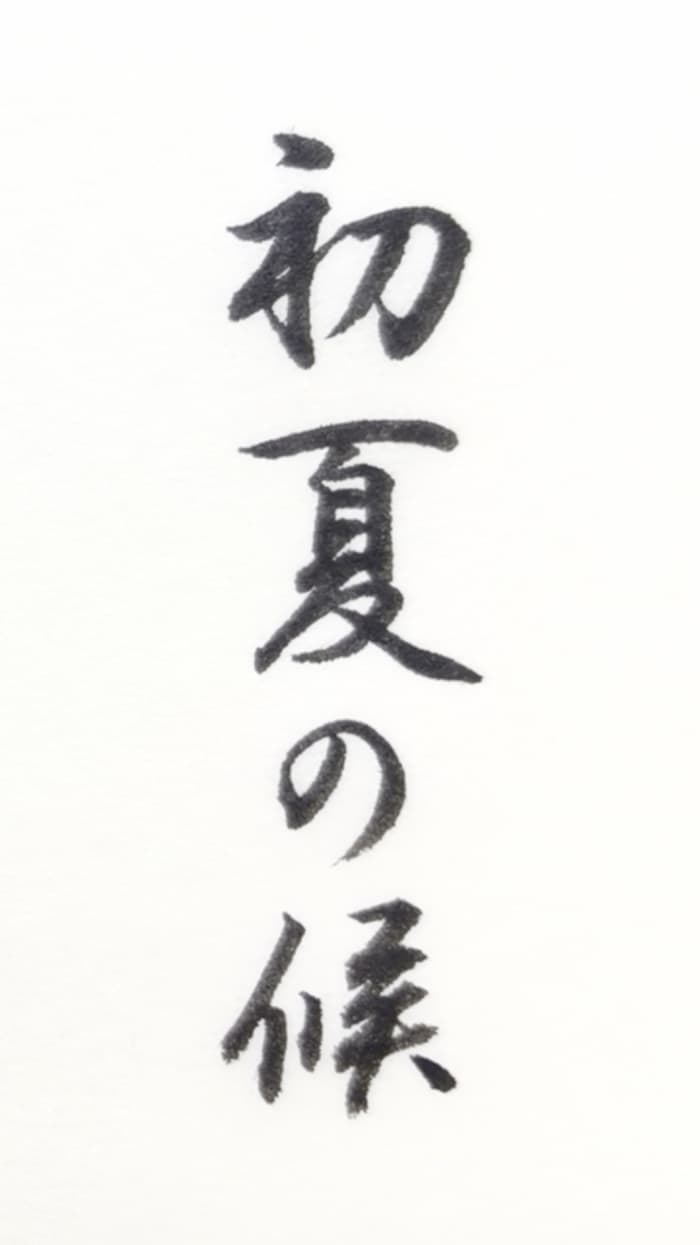 初夏の候